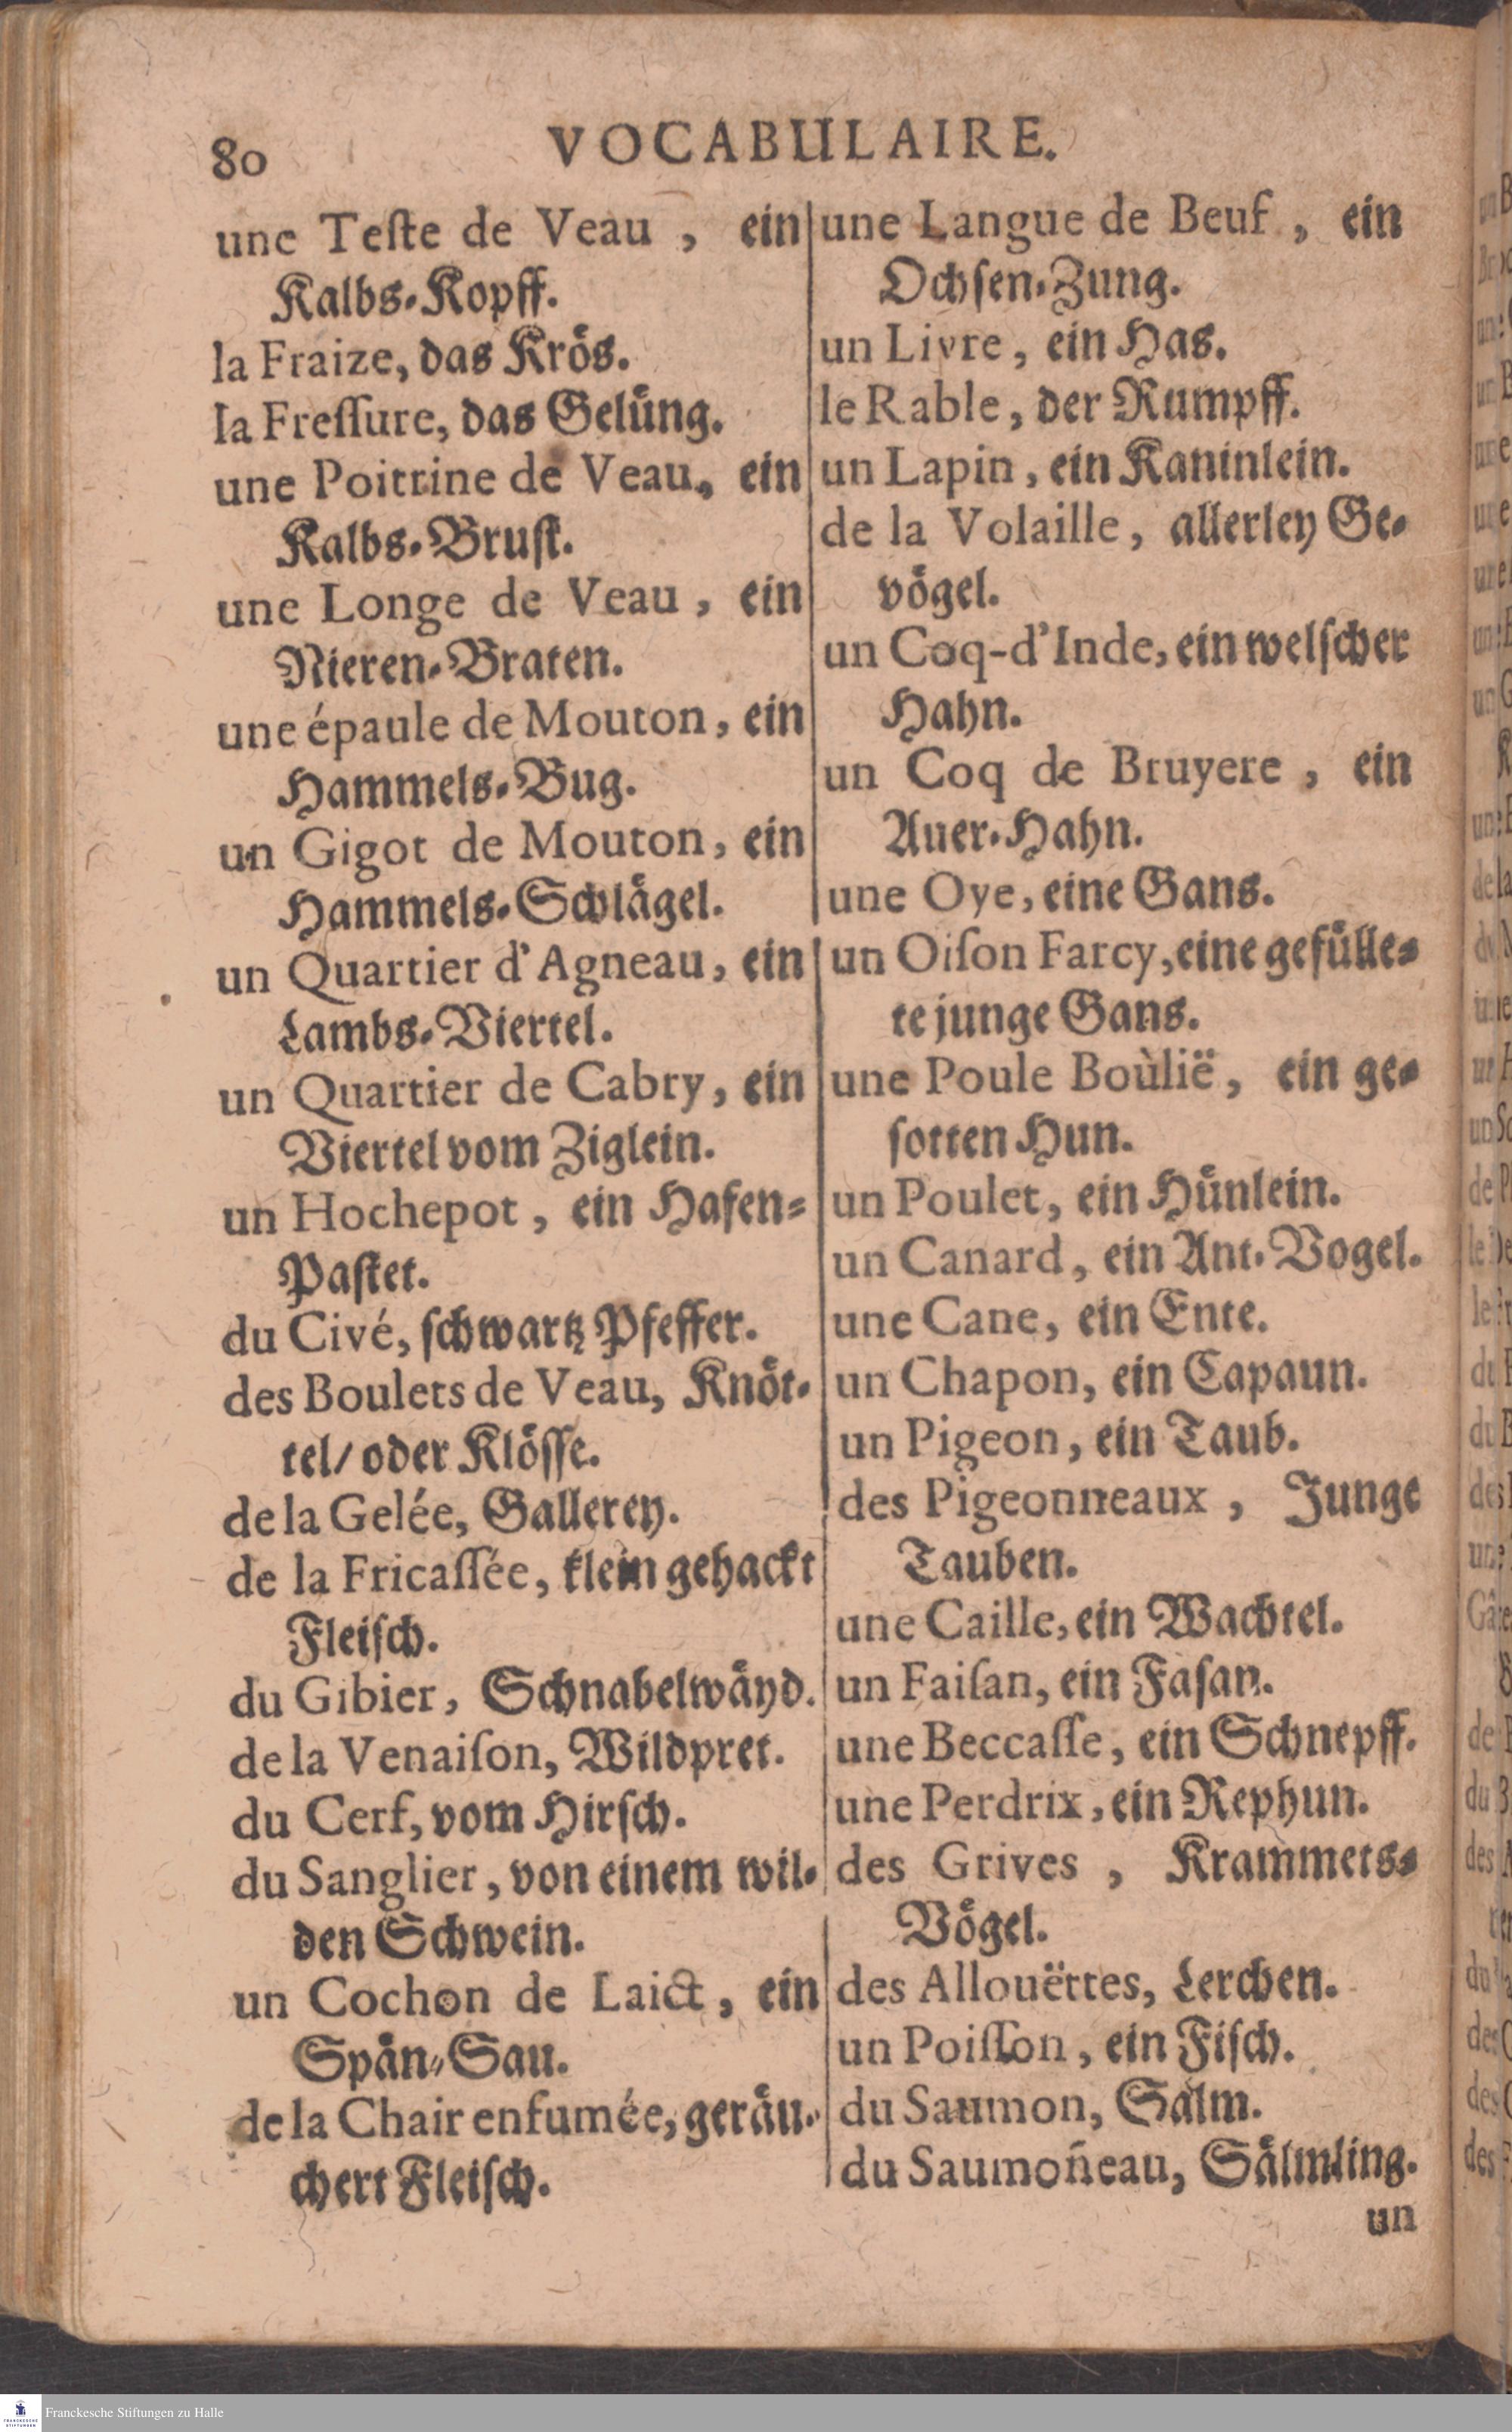 80
VOCABULAIRE.
une Teſte de Veau, ein
Kalbs-Kopff.
la Fraize, das Krös.
la Freſſure, das Gelüng.
une Poitrine de Veau, ein
Kalbs-Bruſt.
une Longe de Veau, ein
Nieren-Braten.
une épaule de Mouton, ein
Hammels-Bug.
un Gigot de Mouton, ein
Hammels-Schlägel.
un Quartier d'Agneau, ein
Lambs-Viertel.
un Quartier de Cabry, ein
Viertel vom Ziglein.
un Hochepot, ein Hafen-
Paſtet.
du Civé, ſchwartz Pfeffer.
des Boulets de Veau, Knöt-
tel/ oder Klöſſe.
de la Gelée, Gallerey.
de la Fricaſſée, klein gehackt
Fleiſch.
du Gibier, Schnabelwäyd.
de la Venaiſon, Wildpret.
du Cerf, vom Hirſch.
du Sanglier, von einem wil-
den Schwein.
un Cochon de Laict, ein
Spän-Sau.
de la Chair enfumée, geräu-
chert Fleiſch.
une Langue de Beuf, ein
Ochſen-Zung.
un Livre, ein Has.
le Rable, der Rumpff.
un Lapin, ein Kaninlein.
de la Volaille, allerley Ge-
vögel.
un Coq-d'Inde, ein welſcher
Hahn.
un Coq de Bruyere, ein
Auer-Hahn.
une Oye, eine Gans.
un Oiſon Farcy, eine gefülle-
te junge Gans.
une Poule Boùlië, ein ge-
ſotten Hun.
un Poulet, ein Hünlein.
un Canard, ein Ant-Vogel.
une Cane, ein Ente.
un Chapon, ein Capaun.
un Pigeon, ein Taub.
des Pigeonneaux, Junge
Tauben.
une Caille, ein Wachtel.
un Faiſan, ein Faſan.
une Beccaſſe, ein Schnepff.
une Perdrix, ein Rephun.
des Grives, Krammets-
Vögel.
des Allouëttes, Lerchen.
un Poiſſon, ein Fiſch.
du Saumon, Salm.
du Saumoñeau, Sälmling.
un
Franckesche Stiftungen zu Halle